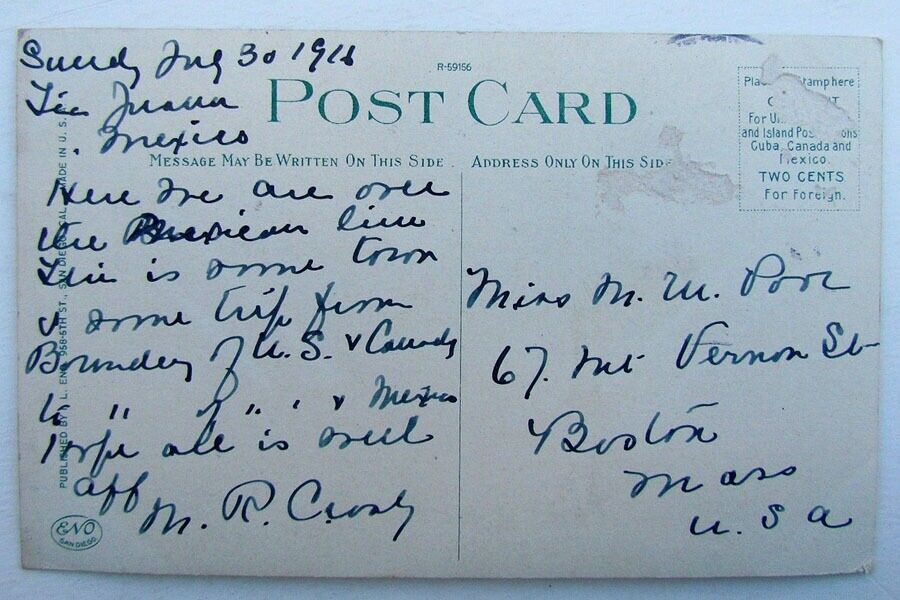 Sundy July 30 1916
Tia Juana
Mexico
R-59156
POST CARD
MESSAGE MAY BE WRITTEN ON THIS SIDE. ADDRESS ONLY ON THIS SIDE
Here we are over
the Mexican line
This is some town
& some trip from
Boundery of U.S. & Canady
to " of " " & Mexico
Hope all is well
aff
M. R. Crosby
here
For
and Island
Cuba, Canada and
Mexico.
TWO CENTS
For Foreign.
Miss M. W.
67. Mt Vernon St
Boston
Mass
U. S A
ENO
SAN DIEGO
PUBLISHED BY L. ENO, 958-5TH ST., SAN DIEGO, CAL. MADE IN U. S.